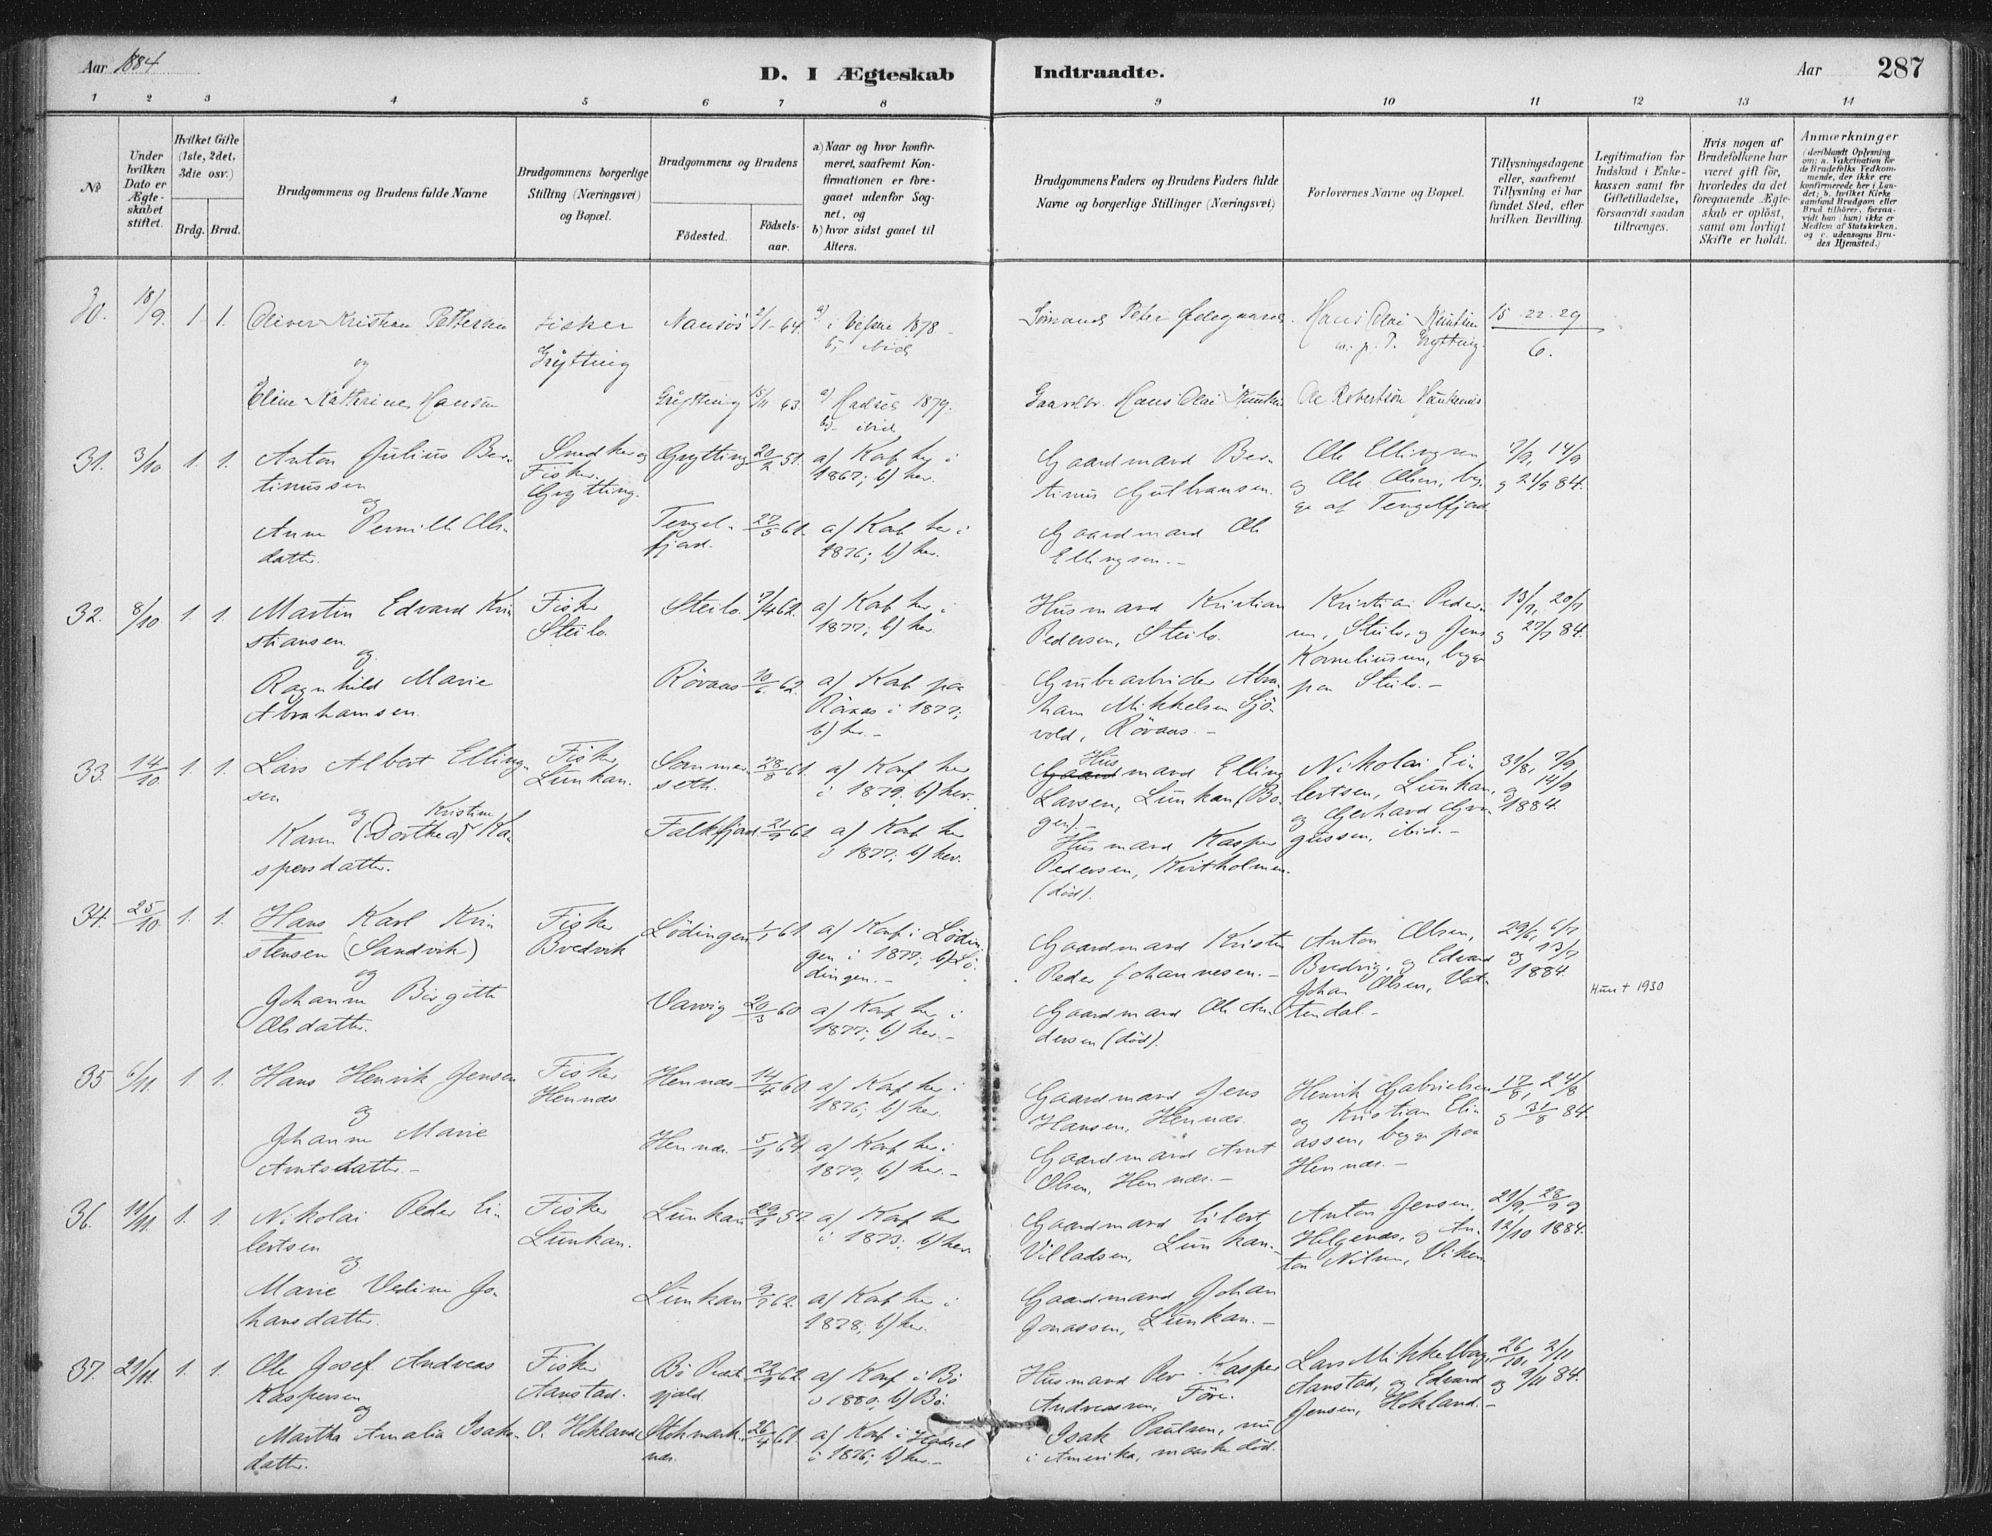 Aar 1884
D. I Ægteskab Indtraadte.
Aar 287
1 2 3 4 5 6 7 8 9 10 11 12 13 14
No
Under hvilken Dato er Ægteskabet stiftet.
Hvilket Gifte (1ste, 2det, 3die osv.)
Brdg. Brud.
Brudgommens og Brudens fulde Navne
Brudgommens borgerlige Stilling (Næringsvei) og Bopæl.
Brudgommens og Brudens
Födested.
Födselsaar.
a) Naar og hvor konfirmeret, saafremt Konfirmationen er foregaaet udenfor Sognet, og
b) hvor sidst gaaet til Alters.
Brudgommens Faders og Brudens Faders fulde Navne og borgerlige Stillinger (Næringsvei)
Forlovernes Navne og Bopæl.
Tillysningsdagene eller, saafremt Tillysning ei har fundet Sted, efter hvilken Bevilling.
Legitimation for Indskud i Enkekassen samt for Giftetilladelse, forsaavidt saadan tiltrænges.
Hvis nogen af Brudefolkene har været gift för, hvorledes da det foregaaende Ægteskab er oplöst, samt om lovligt Skifte er holdt.
Anmærkninger
(deriblandt Oplysning om: a. Vakcination for de Brudefolks Vedkommende, der ikke ere konfirmerede her i Landet; b. hvilket Kirkesamfund Brudgom eller Brud tilhörer, forsaavidt han (hun) ikke er Medlem af Statskirken, og c. udensogns Brudes Hjemsted.)
30. 18/9. 1 1. Oliver Kristian Pettersen Fisker Grytting 2/1-64 a) i Vefsne 1878 - b) ibid
Peter Hans Olai Grytting 15 22 29 / 6.
og
Eline Katherine Hansen Grytting 15/11 63. a) Hadsel 1879. b) - ibid
Gaardbr. Hans Olai Ole Robertson
31. 3/10. 1. 1. Anton Julius Bertinussen Snedker og Fisker. Grytting. Grytting 20/2 51. a) Konf. her i 1867; b) her.
Gaardmand Bertinus Gulbransen. Ole Ellingsen og Ole Olsen, begge af Tengelfjord 7/9, 14/9 og 21/9 84.
og
Anne Pernille Olsdatter. Tengelfjord. 27/5 61. a) Konf. her i 1876; b) her.
Gaardmand Ole Ellingsen. -
32. 8/10. 1. 1. Martin Edvard Kristiansen Fisker Steilo. Steilo. 7/4 62. a) Konf. her i 1877; b) her.
Husmand Kristian Pedersen, Steilo. Kristian Pedersen, Steilo, og Jens Korneliussen, begge paa Steilo. - 13/7, 20/7 og 27/7 84.
og
Ragnhild Marie Abrahamsen. Röraas 10/6 62. a) Konf. paa Röraas i 1877; b) her. -
Grubearbeider Abraham Mikkelsen Sjövold, Röraas. -
33. 14/10 1. 1. Lars Albert Ellingsen Fisker Lunkan. Sommerseth. 28/8 61. a) Konf. her i 1879. b) her.
Hus
Gaardmand Elling Larsen, Lunkan (Bogen). - Nikolai Eilertsen, Lunkan, og Gerhard Grugussen, ibid. - 31/8, 7/9 og 14/9 1884.
og Kristine
Karen (Dorthea) Kaspersdatter. Falkfjord. 21/9 61. a) Konf. her i 1877; b) her.
Husmand Kasper Pedersen, Kvitholmen. (död).
34. 25/10. 1. 1. Hans Karl Kristensen (Sandvik) Fisker Bredvik Lödingen 1/1 61. a) Konf. i Lödingen i 1877; b) Lödingen. -
Gaardmand Kristen Peder Johannesen. - Anton Olsen, Bredvig, og Edvard Johan Olsen, Vattendal - 29/6, 6/7 og 13/7 1884.
Hun † 1930
og
Johanne Birgitte Olsdatter. Varvig 20/3 60. a) Konf. her i 1877; b) her. -
Gaardmand Ole Andersen (död).
35 6/11. 1. 1. Hans Henrik Jensen Fisker Hennes. Hennes 14/4 60. a) Konf. her i 1876; b) her.
Gaardmand Jens Hansen, Hennes. Henrik Gabrielsen og Kristian Eliassen, begge paa Hennes. - 17/8, 24/8 og 31/8 84.
og
Johanne Marie Arntsdatter. - Hennes. 5/1 64. a) Konf. her i 1879; b) her. -
Gaardmand Arnt Olsen, Hennes. -
36. 11/11. 1. 1. Nikolai Peder Eilertsen Fisker Lunkan. Lunkan 29/1 57. a) Konf. her i 1873; b) her.
Gaardmand Eilert Villadsen, Lunkan. - Anton Jensen, Helgenes, og Anton Nilsen, Viken 21/9, 28/9 og 12/10 1884.
og
Marie Vedine Johansdatter. Lunkan 9/1 62. a) Konf. her i 1878; b) her.
Gaardmand Johan Jonassen, Lunkan. -
37. 21/11. 1. 1. Ole Josef Andreas Kaspersen Fisker Aanstad. Bö Prestegjeld. 29/9 62. a) Konf. i Bö i 1880, b) Bö.
Husmand Per Kasper Andreassen, Före. Lars Mikkelborg, Aanstad, og Edvard Jensen, Hokland. - 26/10, 2/11 og 9/11 84.
og
Martha Amalia Isaksdatter. O. Hokland Stokmarknes. 26/4 61. a) Konf. i Hadsel i 1876; b) her. -
Isak Paulsen, nu i Amerika, maaske död.